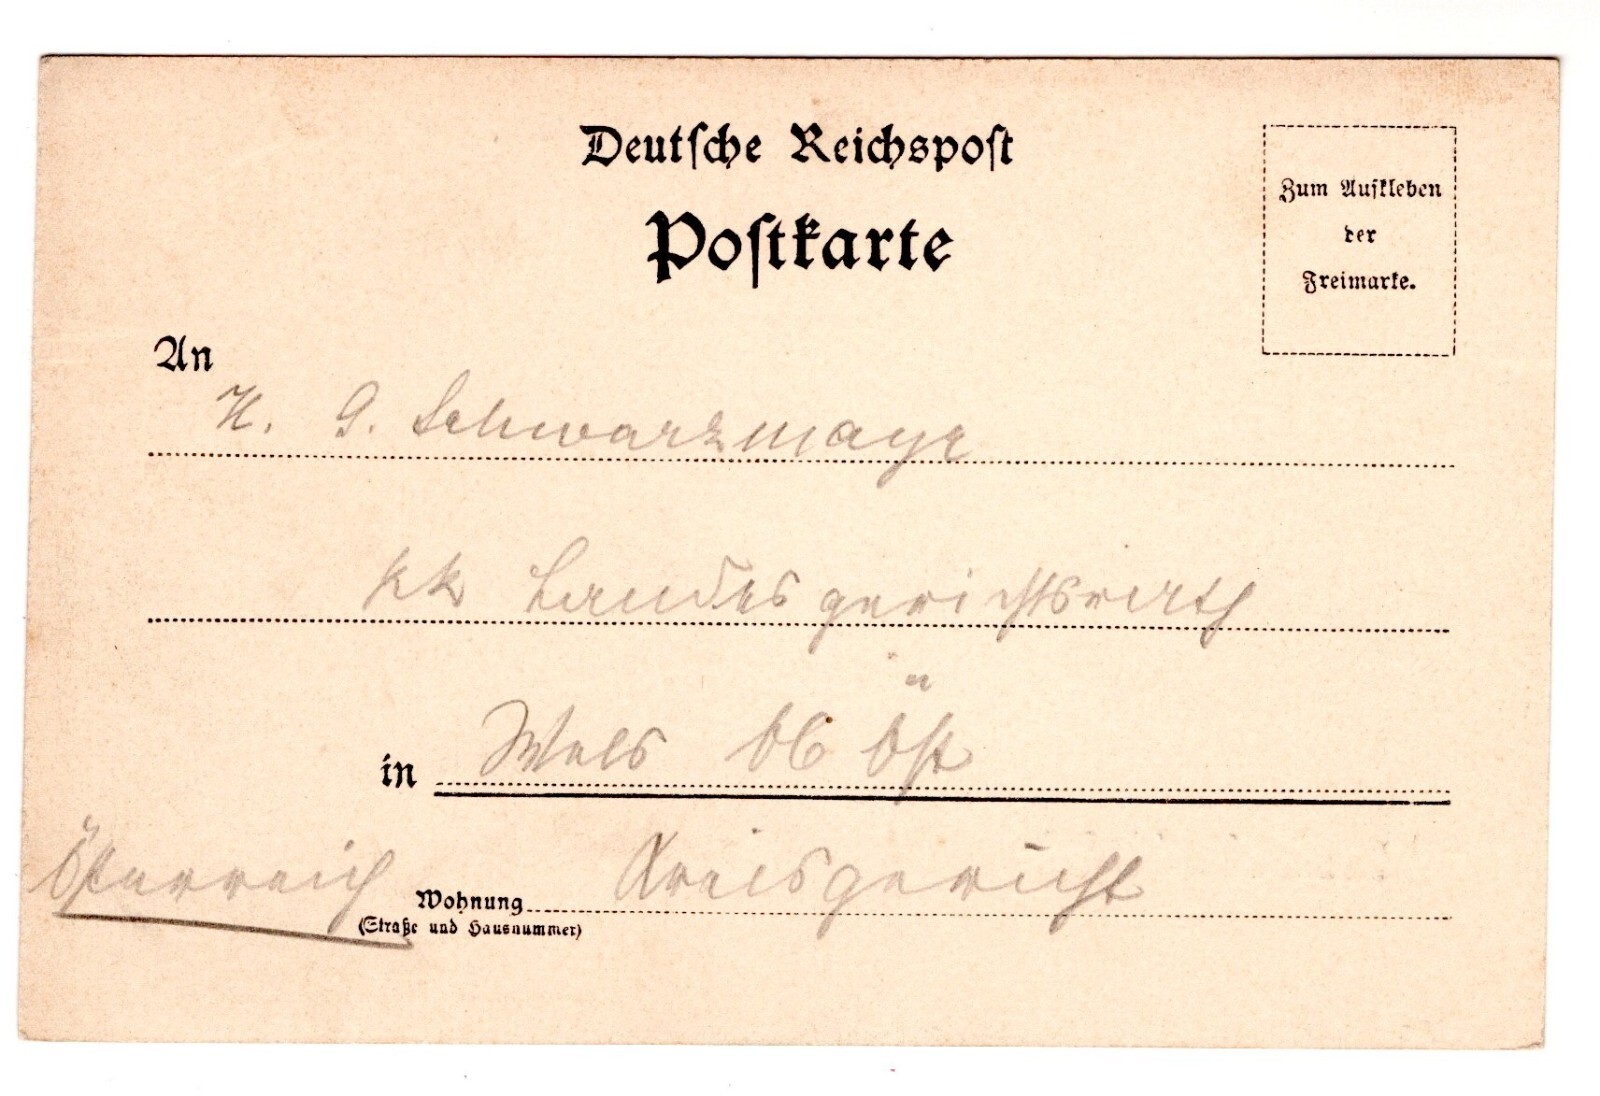 Deutsche Reichspost
Postkarte
Zum Aufkleben
der
Freimarke.
An
H. G. Schwarzmayr
kk Landesgerichtsrath
in Wels Ob Öst
Österreich
Wohnung Kreisgericht
(Straße und Hausnummer)